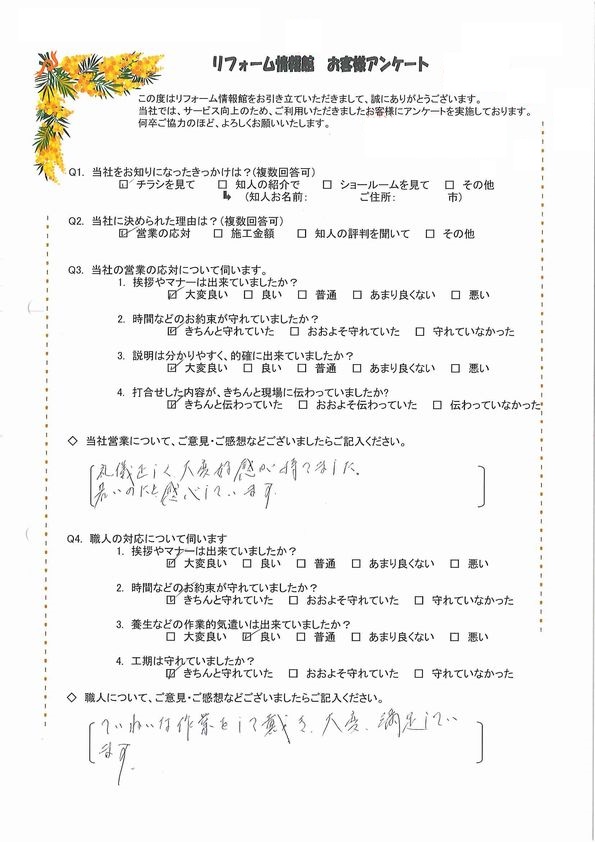 リフォーム情報館　お客様アンケート
この度はリフォーム情報館をお引き立ていただきまして、誠にありがとうございます。
当社では、サービス向上のため、ご利用いただきましたお客様にアンケートを実施しております。
何卒ご協力のほど、よろしくお願いいたします。
Q1. 当社をお知りになったきっかけは？(複数回答可)
☑ チラシを見て　□ 知人の紹介で　□ ショールームを見て　□ その他
↳ (知人お名前:　　　ご住所:　　　市)
Q2. 当社に決められた理由は？(複数回答可)
☑ 営業の応対　□ 施工金額　□ 知人の評判を聞いて　□ その他
Q3. 当社の営業の応対について伺います。
1. 挨拶やマナーは出来ていましたか？
☑ 大変良い　□ 良い　□ 普通　□ あまり良くない　□ 悪い
2. 時間などのお約束が守れていましたか？
☑ きちんと守れていた　□ おおよそ守れていた　□ 守れていなかった
3. 説明は分かりやすく、的確に出来ていましたか？
☑ 大変良い　□ 良い　□ 普通　□ あまり良くない　□ 悪い
4. 打合せした内容が、きちんと現場に伝わっていましたか?
☑ きちんと伝わっていた　□ おおよそ伝わっていた　□ 伝わっていなかった
◇ 当社営業について、ご意見・ご感想などございましたらご記入ください。
礼儀正しく大変好感が持てました。
若いのにと感心しています。
Q4. 職人の対応について伺います
1. 挨拶やマナーは出来ていましたか？
☑ 大変良い　□ 良い　□ 普通　□ あまり良くない　□ 悪い
2. 時間などのお約束が守れていましたか？
☑ きちんと守れていた　□ おおよそ守れていた　□ 守れていなかった
3. 養生などの作業的気遣いは出来ていましたか？
□ 大変良い　☑ 良い　□ 普通　□ あまり良くない　□ 悪い
4. 工期は守れていましたか？
☑ きちんと守れていた　□ おおよそ守れていた　□ 守れていなかった
◇ 職人について、ご意見・ご感想などございましたらご記入ください。
ていねいな作業をして戴き、大変、満足してい
ます。